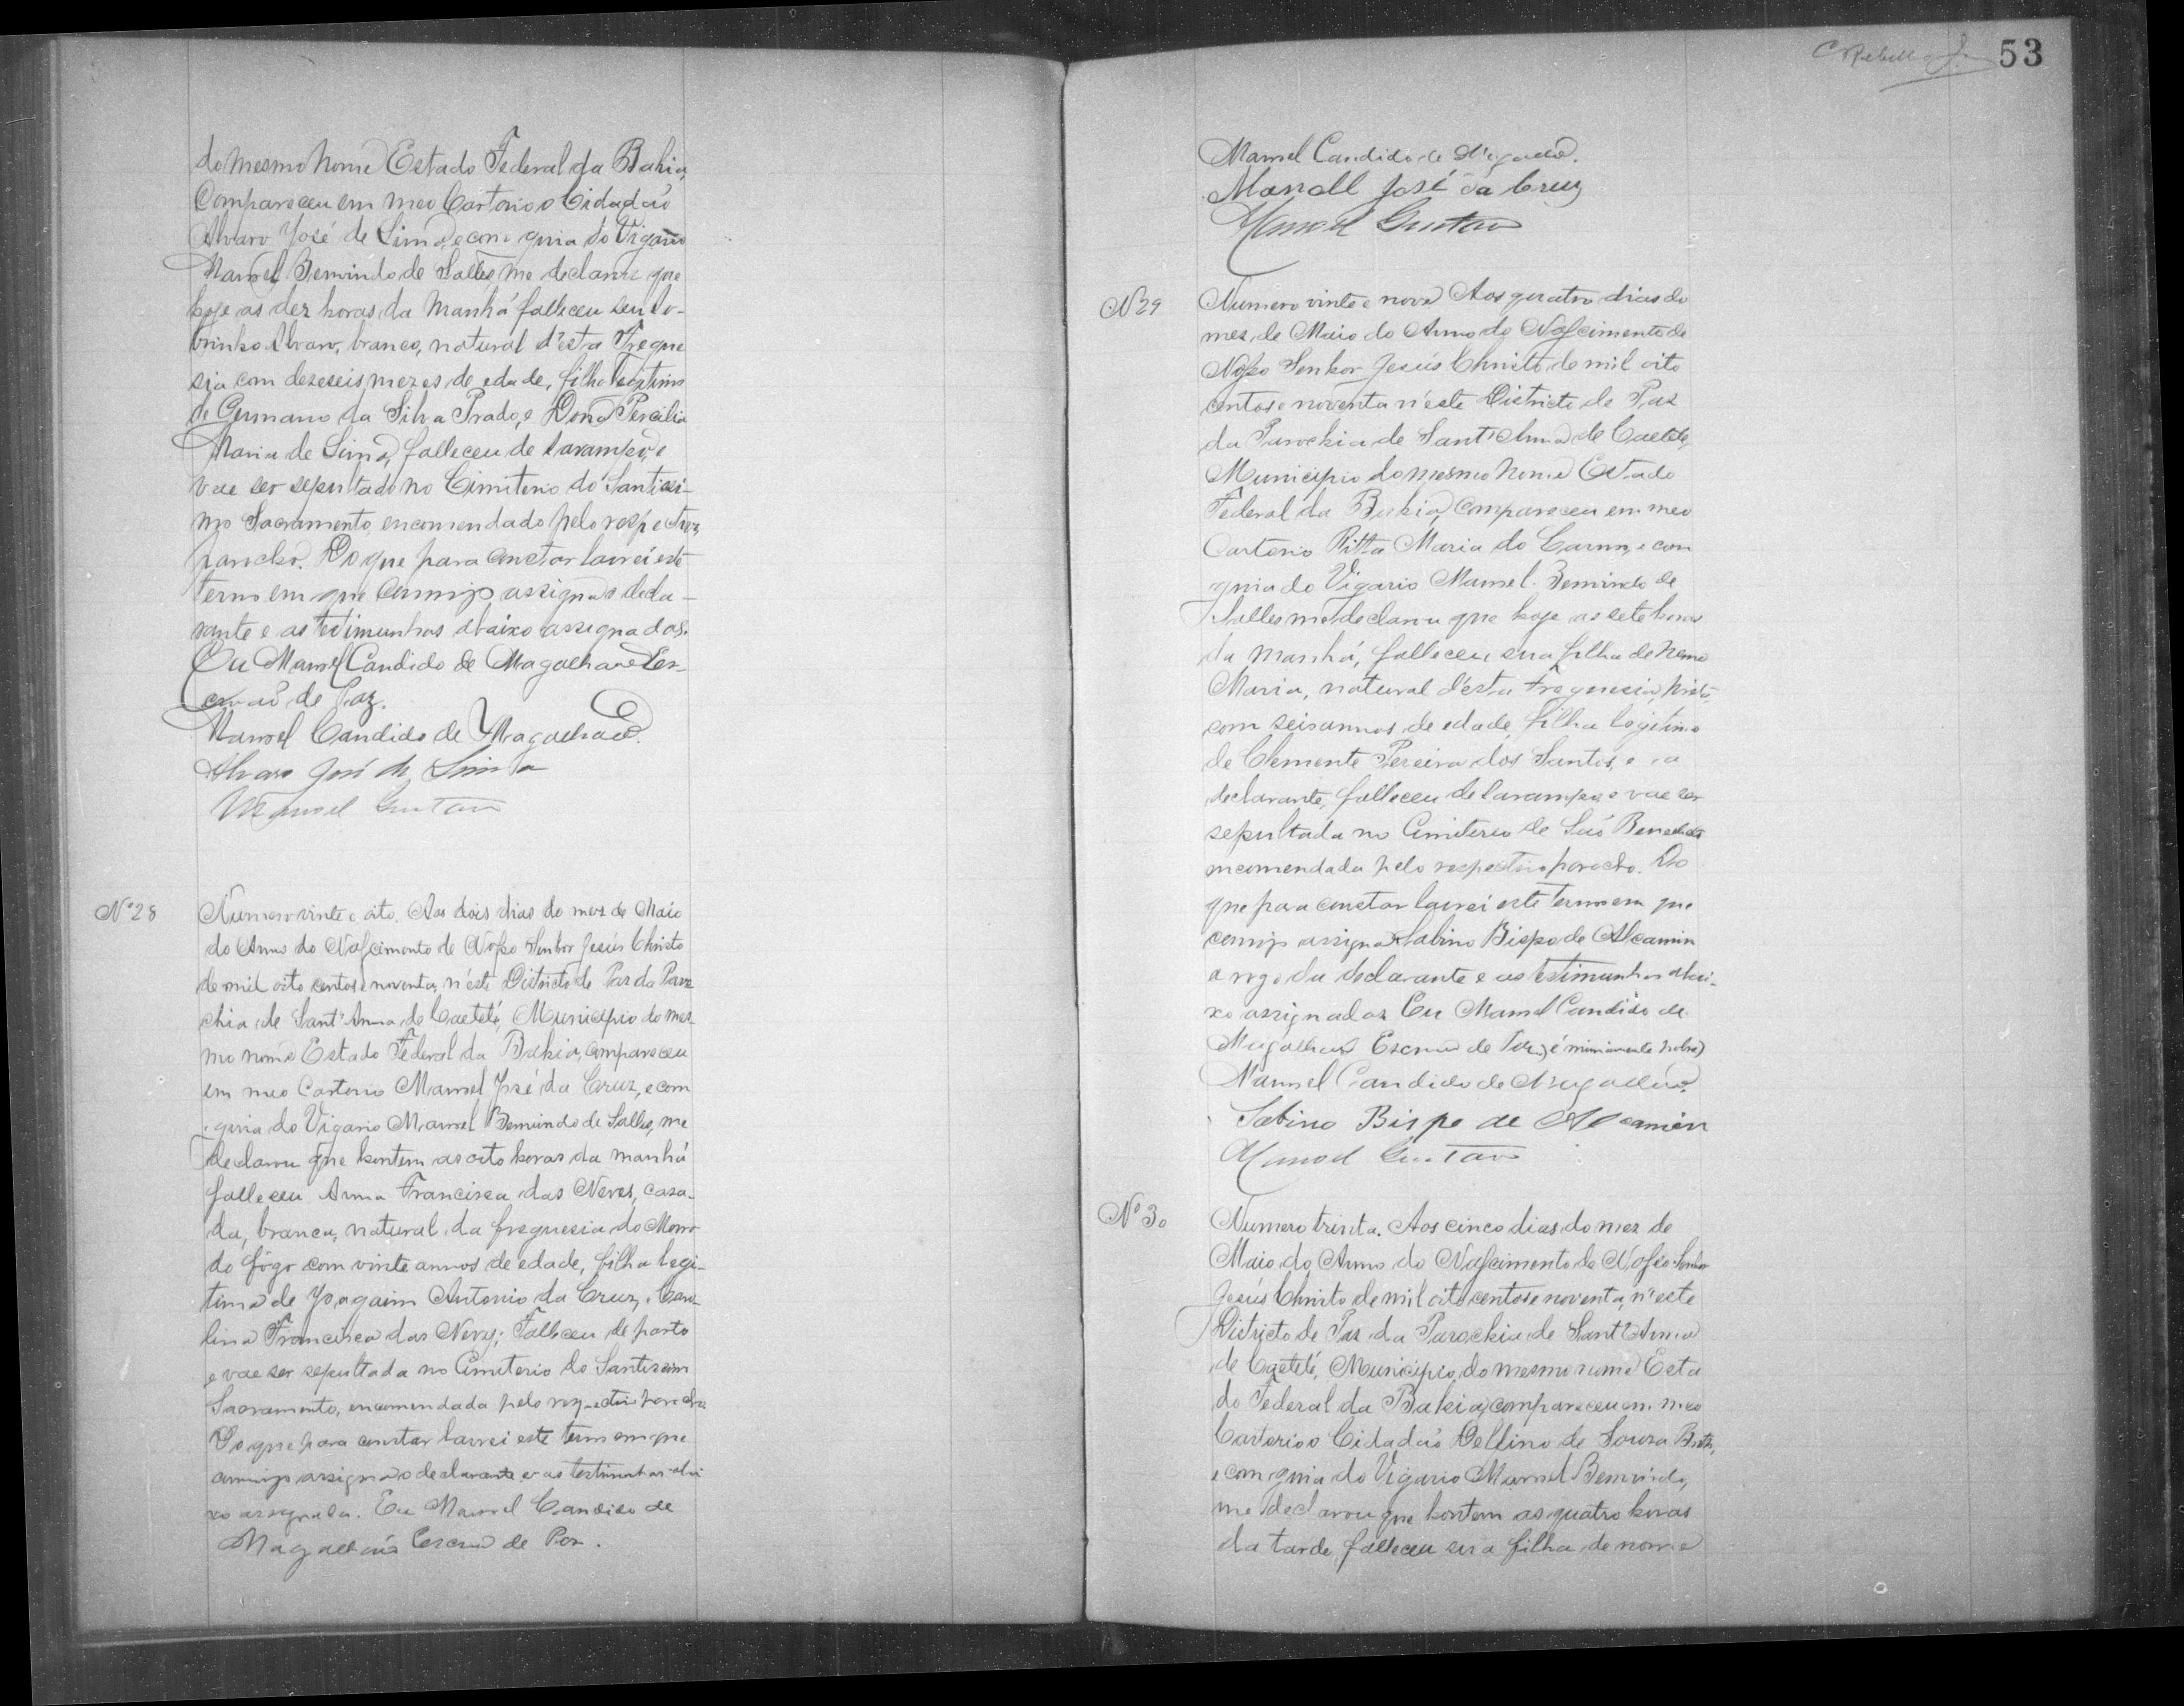 do mesmo nome Estado Federal da Bahia,
Compareceu em meo Cartorio o Cidadaõ
Alvaro José de Lima, e com guia do Vigario
Manoel Bemvindo de Salles, me declarou que
hoje as dez horas da manhã falleceu seu so-
brinho Alvaro, branco, natural d'esta Fregue
sia com dezeseis mezes de edade, filho legitimo
de Germano da Silva Prado, e Dona Percilia
Maria de Lima, falleceu de sarampo, e
vae ser sepultado no Cimiterio do Santissi-
mo Sacramento, encomendado pelo respectivo
parocho. Do que para constar lavrei este
termo em que comigo assigna o decla-
rante e as testimunhas abaixo assignados.
Eu Manoel Candido de Magalhaes Es-
crivaõ de Paz.
Manoel Candido de Magalhaes.
Alvaro José de Lima
Manoel Gustavo
Nº 28
Numero vinte e oito. Aos dois dias do mez de Maio
do Anno do Nascimento de Nosso Senhor Jesús Christo
de mil oito centos e noventa, n'este Districto de Paz da Paro
chia de Sant'Anna de Caeteté, Municipio do mes-
mo nome Estado Federal da Bahia, compareceu
em meo Cartorio Manoel José da Cruz, e com
guia do Vigario Manoel Bemvindo de Salles, me
declarou que hontem as oito horas da manhã
falleceu Anna Francisca das Neves, casa-
da, branca, natural da freguesia do Morro
do fôgo com vinte annos de edade, filha legi-
tima de Joaquim Antonio da Cruz, e Caro-
lina Francisca das Neves; Falleceu de parto
e vae ser sepultada no Cimiterio do Santissimo
Sacramento, encomendada pelo respectivo parocho
Do que para constar lavrei este termo em que
comigo assigna o declarante e as testimunhas abai
xo assignados. Eu Manoel Candido de
Magalhães Escrivão de Paz.
C Rebello Jr
53
Manoel Candido de Magalhaes.
Manoel José da Cruz
Manoel Gustavo
Nº 29
Numero vinte e nove Aos quatro dias do
mez de Maio do Anno do Nascimento de
Nosso Senhor Jesús Christo de mil oito
centos e noventa n'este Districto de Paz
da Parochia de Sant'Anna de Caeteté,
Municipio do mesmo nome Estado
Federal da Bahia, compareceu em meo
Cartorio Ritta Maria do Carmo, e com
guia do Vigario Manoel Bemvindo de
Salles me declarou que hoje as sete horas
da manhã, falleceu sua filha de nome
Maria, natural d'esta Freguesia,
com seis annos de edade, filha legitima
de Clemente Pereira dos Santos, e a
declarante, falleceu de sarampo, e vae ser
sepultada no Cimiterio de Saõ Benedicto
encomendada pelo respectivo parocho. Do
que para constar lavrei este termo em que
comigo assigna Sabino Bispo de Alcamin
a rogo da declarante e as testimunhas abai-
xo assignados Eu Manoel Candido de
Magalhaes Escrivaõ de Paz
Manoel Candido de Magalhães.
Sabino Bispo de Alcamin
Manoel Gustavo
Nº 30
Numero trinta. Aos cinco dias do mez de
Maio do Anno do Nascimento de Nosso Senhor
Jesús Christo de mil oito centos e noventa, n'este
Districto de Paz da Parochia de Sant'Anna
de Caeteté, Municipio do mesmo nome Esta
do Federal da Bahia, compareceu em meo
Cartorio o Cidadaõ Delfino de Souza
e com guia do Vigario Manoel Bemvindo,
me declarou que hontem as quatro horas
da tarde, falleceu sua filha de nome